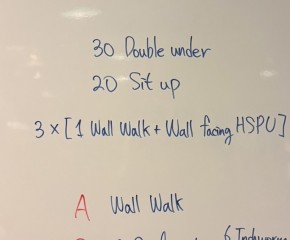 30 Double under
20 Sit up
3 x [1 Wall Walk + Wall facing HSPU]
A Wall Walk
6 Inchworm